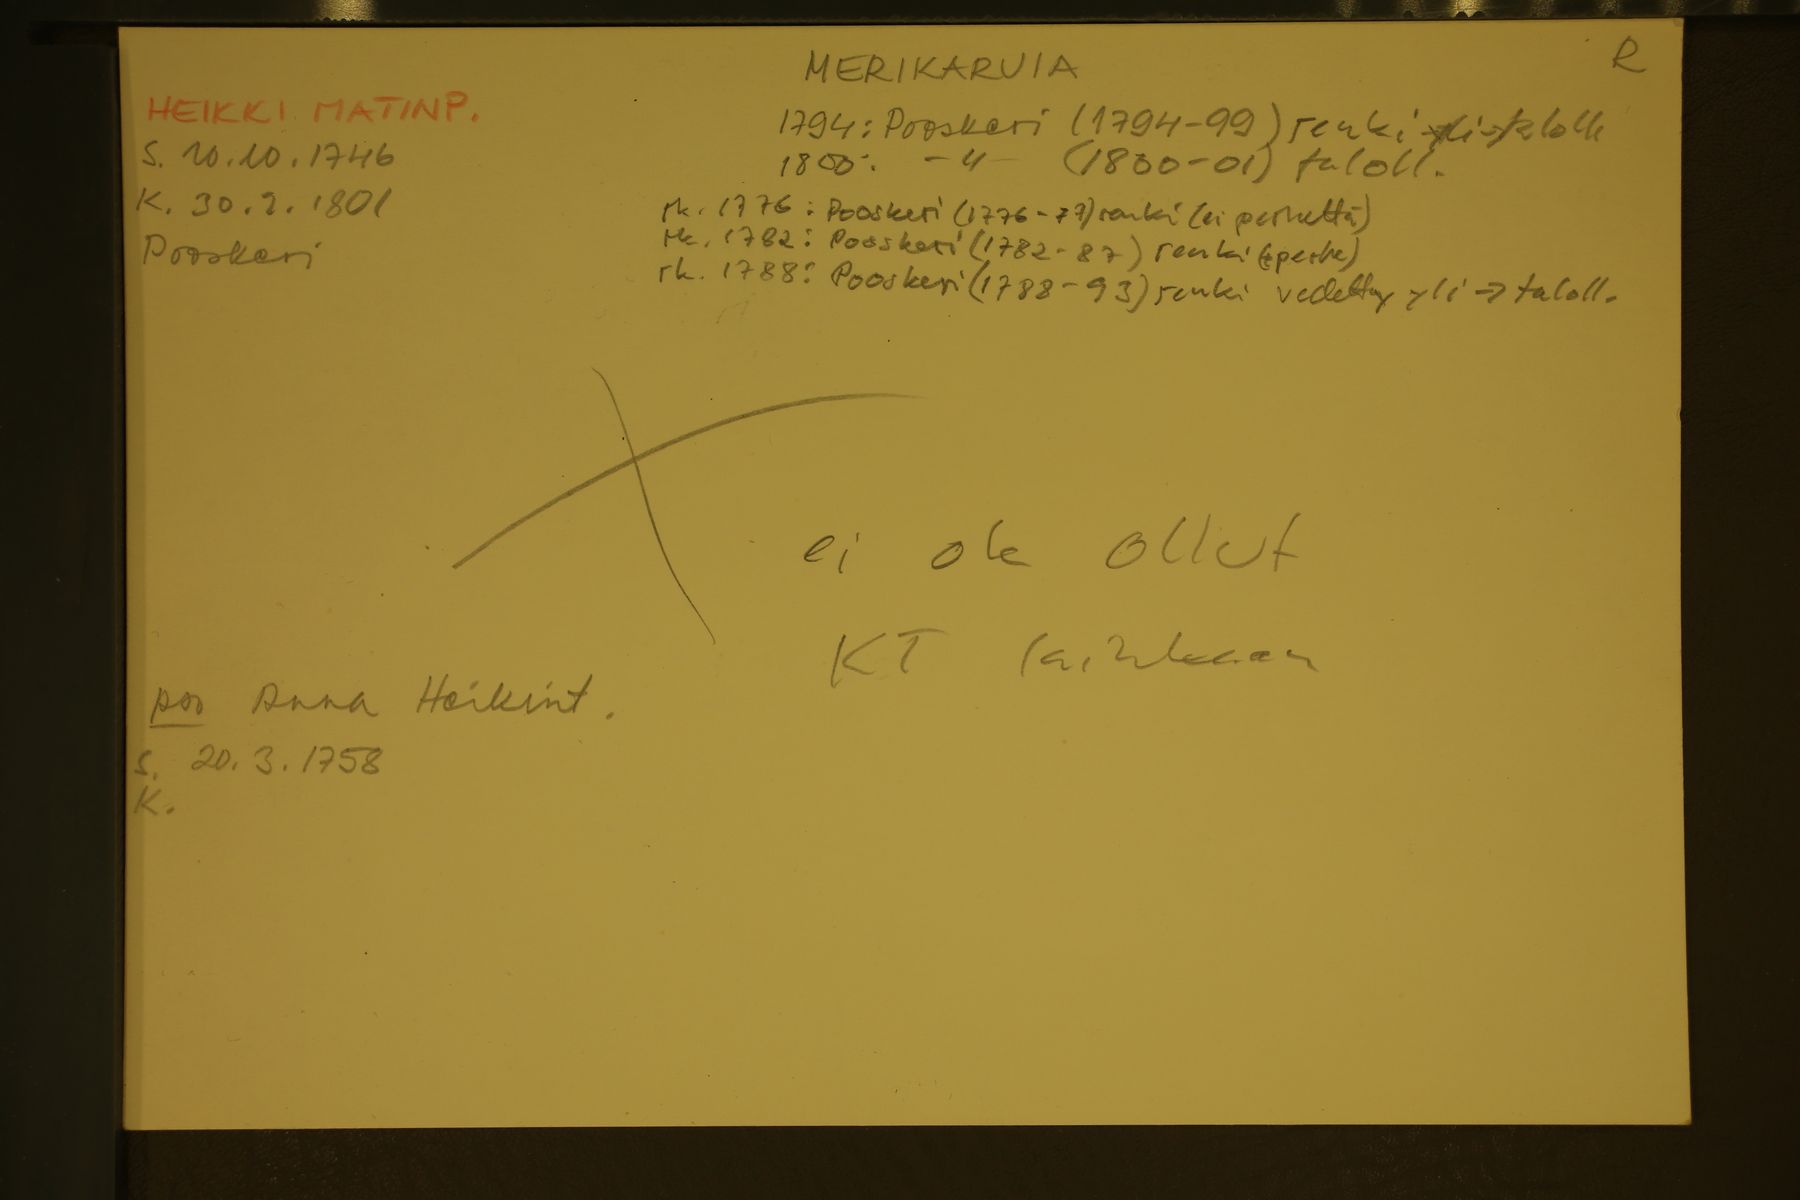 MERIKARVIA
R
HEIKKI MATINP.
S. 10.10.1746
K. 30.2.1801
Pooskeri
1794: Pooskeri (1794-99) renki yli → taloll.
1800: -"- (1800-01) taloll.
rk. 1776: Pooskeri (1776-77) renki (ei perhettä)
rk. 1782: Pooskeri (1782-87) renki (+perhe)
rk. 1788: Pooskeri (1788-93) renki vedetty yli → taloll.
ei ole ollut
KT
pso Anna Heikint.
S. 20.3.1758
K.